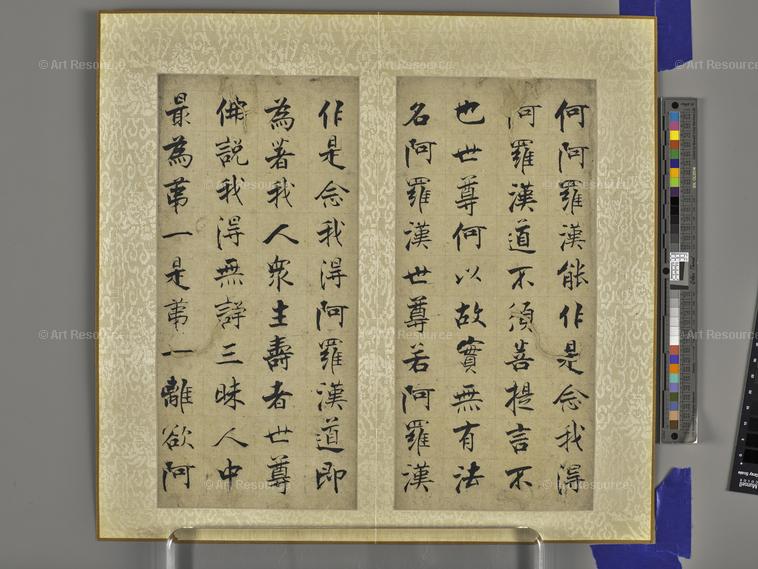 何阿羅漢能作是念我得
阿羅漢道不須菩提言不
也世尊何以故實無有法
名阿羅漢世尊若阿羅漢
作是念我得阿羅漢道即
為著我人衆生壽者世尊
佛說我得無諍三昧人中
最為第一是第一離欲阿
© Art Resource
© Art Resource
© Art Resource
© Art Resource
© Art Resource
© Art Resource
© Art Resource
© Art Resource
© Art Resource
© Art Resource